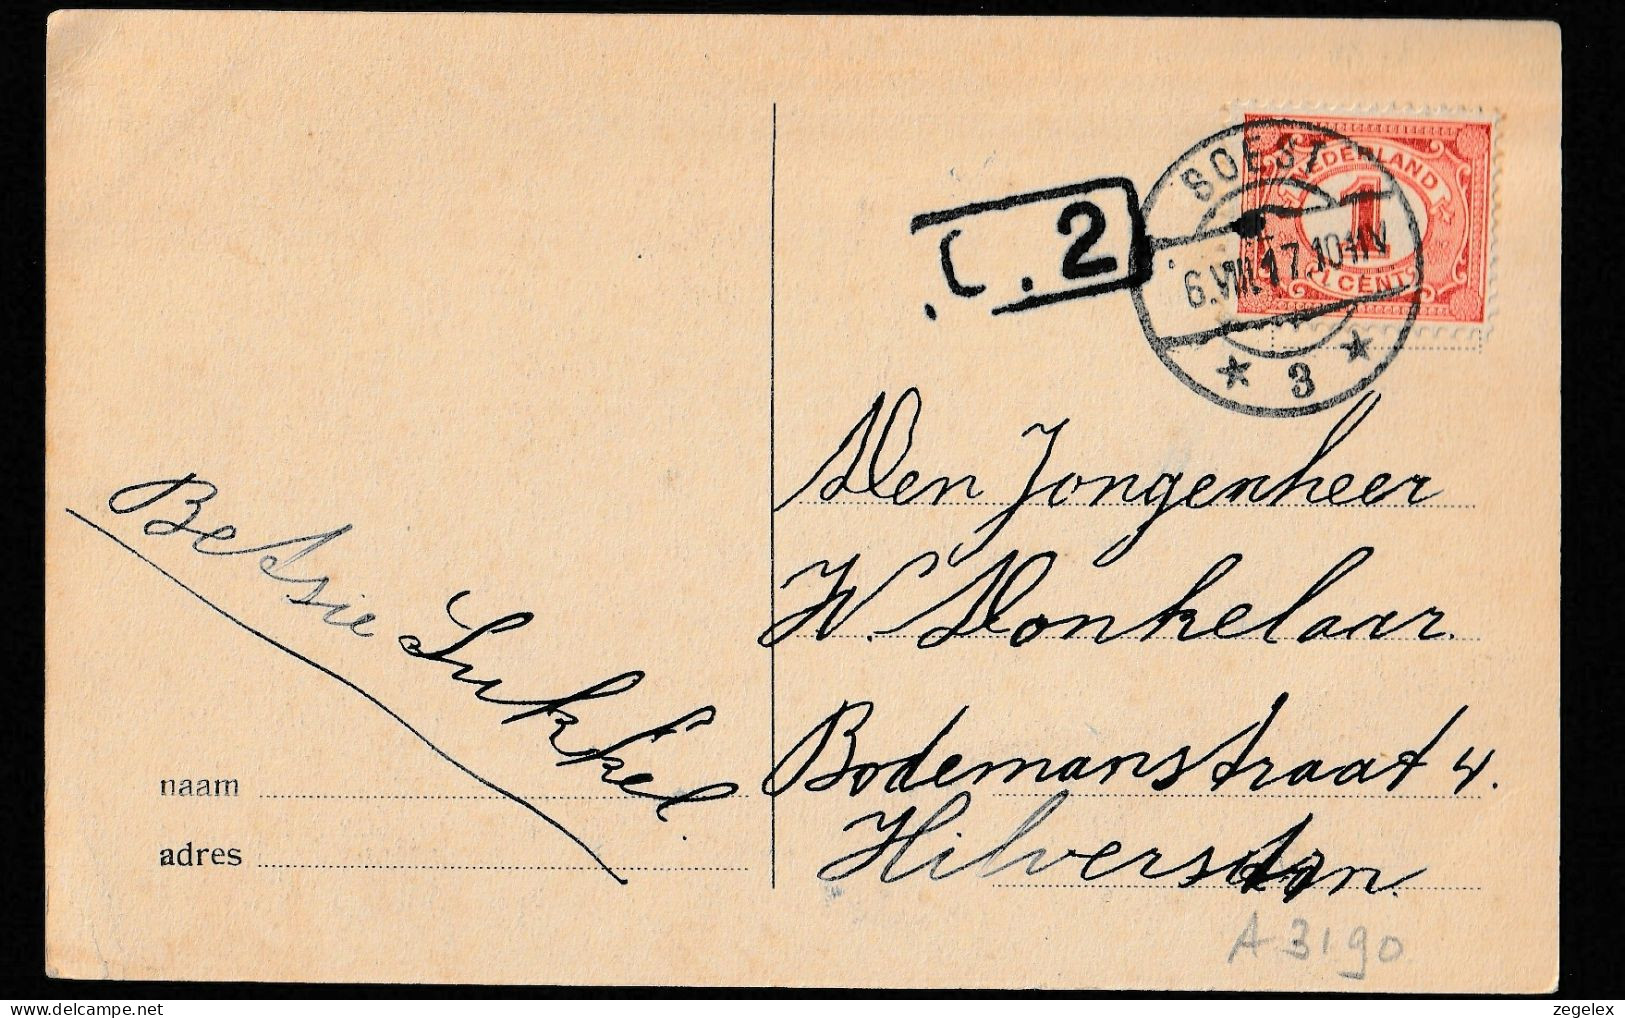 SOEST
6.VIII.17.10-11V
3
NEDERLAND
1
1 CENT
.C.2
Den Jongenheer
W. Donkelaar.
Bodemanstraat 4.
Hilversum.
Betsie Sukkel.
naam
adres
A 3190
zegelex